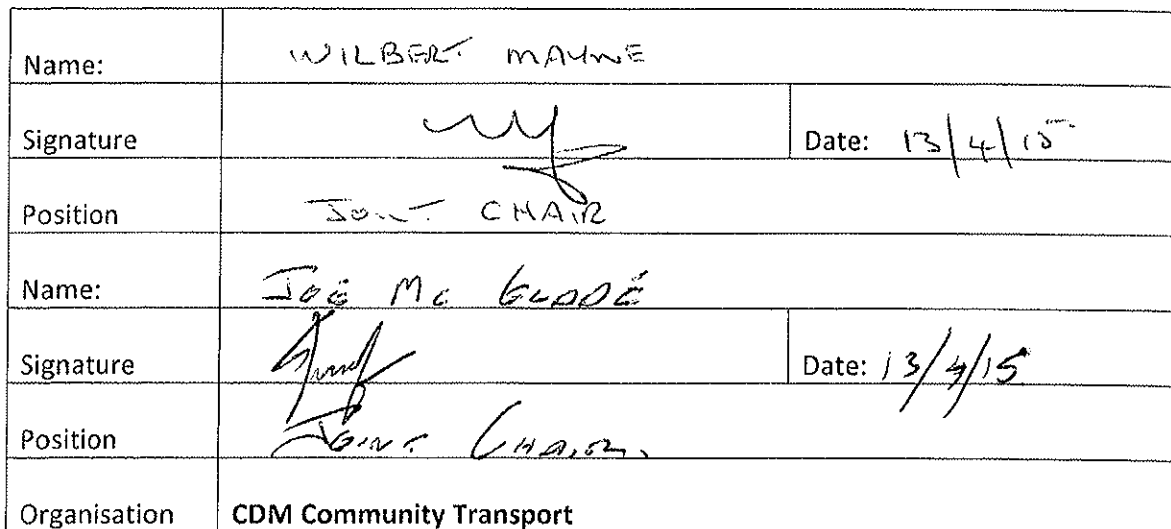 Name: WILBERT MAYNE
Signature Date: 13/4/15
Position JOINT CHAIR
Name: JOE Mc GLADE
Signature Date: 13/4/15
Position JOINT CHAIR.
Organisation CDM Community Transport